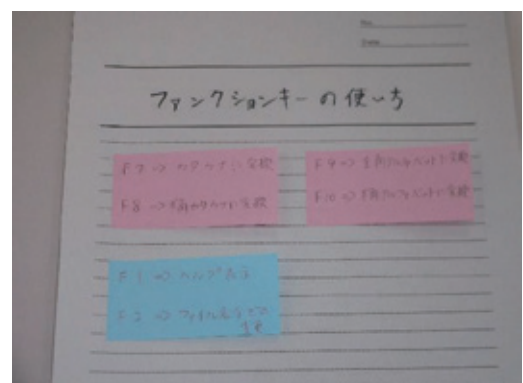 No.
Date
ファンクションキーの使い方
F7 => カタカナに変換
F8 => 半角カタカナに変換
F9 => 全角アルファベットに変換
F10 => 半角アルファベットに変換
F1 => ヘルプ表示
F2 => ファイル名などの
変更